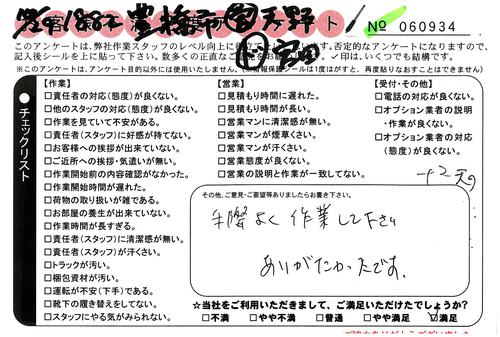 豊橋市 天野
№ 060934
このアンケートは、弊社作業スタッフのレベル向上に役立てたいと思います。否定的なアンケートになりますので、
記入後シールを上に貼って下さい。
✓印は、いくつでも結構です。
※このアンケートは、アンケート目的以外には使用いたしません。
チェックリスト
【作業】
□責任者の対応（態度）が良くない。
□他のスタッフの対応（態度）が良くない。
□作業を見ていて不安がある。
□責任者（スタッフ）に好感が持てない。
□お客様への挨拶が出来ていない。
□ご近所への挨拶・気遣いが無い。
□作業開始前の内容確認がなかった。
□作業開始時間が遅れた。
□荷物の取り扱いが雑である。
□お部屋の養生が出来ていない。
□作業時間が長すぎる。
□責任者（スタッフ）に清潔感が無い。
□責任者（スタッフ）が汗くさい。
□トラックが汚い。
□梱包資材が汚い。
□運転が不安（下手）である。
□靴下の履き替えをしてない。
□スタッフにやる気がみられない。
【営業】
□見積もり時間に遅れた。
□見積もり時間が長い。
□営業マンに清潔感が無い。
□営業マンが煙草くさい。
□営業マンが汗くさい。
□営業態度が良くない。
□営業の説明と作業が一致してない。
【受付・その他】
□電話の対応が良くない。
□オプション業者の説明
・作業が良くない。
□オプション業者の対応
（態度）が良くない。
その他、ご意見・ご要望等ありましたらお書き下さい。
手際よく作業して下さい
ありがたかったです。
☆当社をご利用いただきまして、ご満足いただけたでしょうか？
□不満 □やや不満 □普通 □やや満足 ☑満足